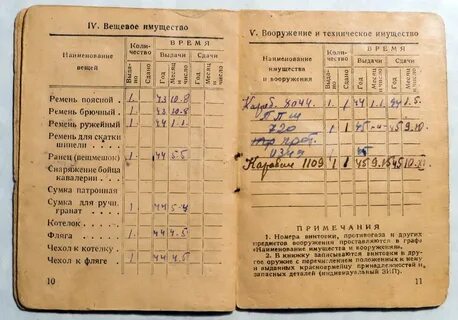 IV. Вещевое имущество
Наименование вещей
Количество
ВРЕМЯ
Выдачи
Сдачи
Выдано
Сдано
Год
Месяц и число
Год
Месяц и число
Ремень поясной 1. 43 10.8
Ремень брючный 1. 43 10.8
Ремень ружейный 1. 44 1.1.
Ремень для скатки
шинели
Ранец (вещмешок) 1. 44 5.5
Снаряжение бойца
кавалерии
Сумка патронная
Сумка для ручн.
гранат 1. 44 5.4
Котелок
Фляга 1. 44 4.5
Чехол к котелку
Чехол к фляге 1. 44 4.5
10
V. Вооружение и техническое имущество
Наименование имущества и вооружения
Количество
ВРЕМЯ
Выдачи
Сдачи
Выдано
Сдано
Год
Месяц и число
Год
Месяц и число
Караб. 8044. 1 1 44 1.1. 44 1.5.
ППШ
720 1 1 45 45 9.10.
0349 45
Карабин 1109 1 1 45 9.15 45 10.
ПРИМЕЧАНИЯ
1. Номера винтовки, противогаза и других
предметов вооружения проставляются в графе
«Наименование имущества и вооружения».
2. В книжку записываются винтовки и
другое оружие с перечислением положенных к нему
и выданных красноармейцу принадлежностей и
запасных деталей (индивидуальный ЗИП).
11